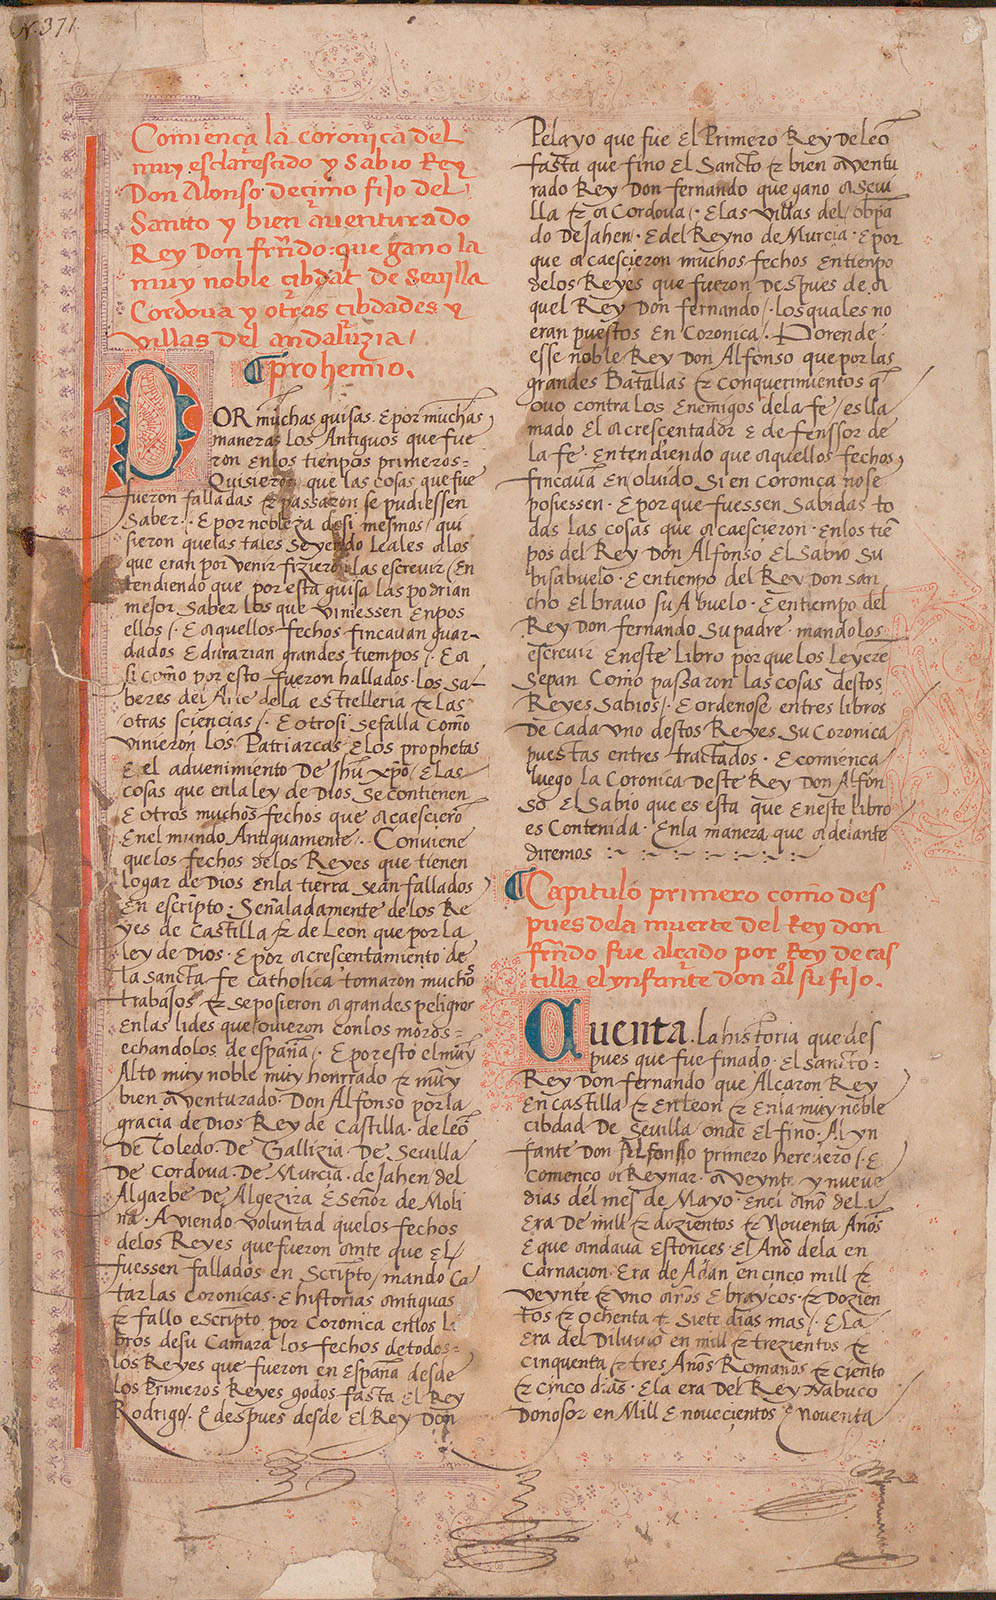 N. 371
Comiença la coronica del
muy esclarescido y Sabio Rey
Don Alonso decimo fijo del
Santo y bien auenturado
Rey Don frñdo: que gano la
muy noble çibdat de Sevilla
Cordoua y otras çibdades y
villas del andaluzia /
¶ prohemio.
POR muchas guisas. E por muchas
maneras los Antiguos que fue
ron en los tienpos primeros =
Quisieron que las cosas que fue
fueron falladas & passaron se pudiessen
Saber. E por nobleza de si mesmos / qui
sieron que las tales seyendo leales a los
que eran por venir fiziero las escreuir / En
tendiendo que por esta guisa las podrian
mejor saber los que viniessen en pos
ellos /. E aquellos fechos fincauan guar-
dados E durarian grandes tiempos /. E a
si como por esto fueron hallados los sa-
beres del Arte de la estrelleria & las
otras sciencias /. E otrosi se falla como
vinieron los Patriarcas E los prophetas
E el aduenimiento De Jhu xpo / E las
cosas que en la ley de Dios se contienen
E otros muchos fechos que acaesciero
En el mundo Antiguamente /. Conviene
que los fechos de los Reyes que tienen
logar de Dios en la tierra sean fallados
En escripto. Señaladamente de los Re
yes de Castilla & de Leon que por la
ley de Dios. E por acrescentamiento de
la sancta fe catholica tomaron muchos
trabajos & se posieron a grandes peligros
En las lides que ouieron con los moros =
echandolos de españa /. E por esto el muy
Alto muy noble muy honrrado & muy
bien aventurado. Don Alfonso por la
gracia de Dios Rey de Castilla. de leo
De Toledo. De Gallizia. De Sevilla
De Cordova. De Murcia. de Jahen / del
Algarbe De Algezira E Señor de Moli
na. Aviendo voluntad que los fechos
de los Reyes que fueron ante que el /
fuessen fallados en Scripto / mando Ca
tar las coronicas. E historias antiguas
& fallo escripto por Coronica en los li
bros de su Camara los fechos de todos =
los Reyes que fueron en España desde
los Primeros Reyes godos fasta el Rey
Rodrigo /. E despues desde el Rey Don
Pelayo que fue El Primero Rey De leo
fasta que fino El Sancto & bien aventu
rado Rey Don fernando que gano a Sevi
lla & a Cordova /. E las villas del obispa
do De Jahen. E del Reyno de Murcia. E por
que acaescieron muchos fechos en tiempo
de los Reyes que fueron Despues de a
quel Rey Don fernando /. los quales no
eran puestos en Coronica /. Porende
esse noble Rey Don Alfonso que por las
grandes Batallas & conquerimientos q
ouo contra los Enemigos de la fe / es lla
mado El acrescentador E defenssor de
la fe. Entendiendo que aquellos fechos
fincauan En oluido si en coronica no se
posiessen. E por que fuessen sabidas to
das las cosas que acaescieron. En los tie
pos del Rey Don Alfonso El Sabio su
bisabuelo. E en tiempo del Rey Don san
cho El brauo su Abuelo. E en tiempo del
Rey Don fernando su padre. mandolos
escreuir En este libro por que los leyere
Sepan Como passaron las cosas destos
Reyes Sabios /. E ordenose en tres libros
De cada vno destos Reyes su Coronica
puestas en tres tractados. E comiença
luego la Coronica deste Rey Don Alfon
so El Sabio que es esta que En este libro
es Contenida. En la manera que adelante
diremos :~ ~ :~ :~ :~ :~
¶ Capitulo primero como des
pues dela muerte del Rey don
frñdo fue alçado por Rey de cas
tilla el ynfante don al su fijo.
Cuenta la historia que des
pues que fue finado. El sancto:
Rey Don fernando que Alçaron Rey
En castilla & en Leon & en la muy noble
cibdad De Sevilla onde El fino. Al yn
fante Don Alfonso primero heredero /. E
començo a Reynar. a veynte y nueve
dias del mes de Mayo. En el Año de la
Era De mill & dozientos & Noventa Años
E que andava Estonces El Año de la en
carnacion. Era de Adan en cinco mill &
veynte & vno años Ebraycos. & Dozien
tos & ochenta & Siete dias mas /. E la
era del Diluuio en mill & trezientos &
cinquenta & tres Años Romanos & ciento
& cinco dias. E la era Del Rey Nabuco
Donosor en Mill E novecientos & Noventa